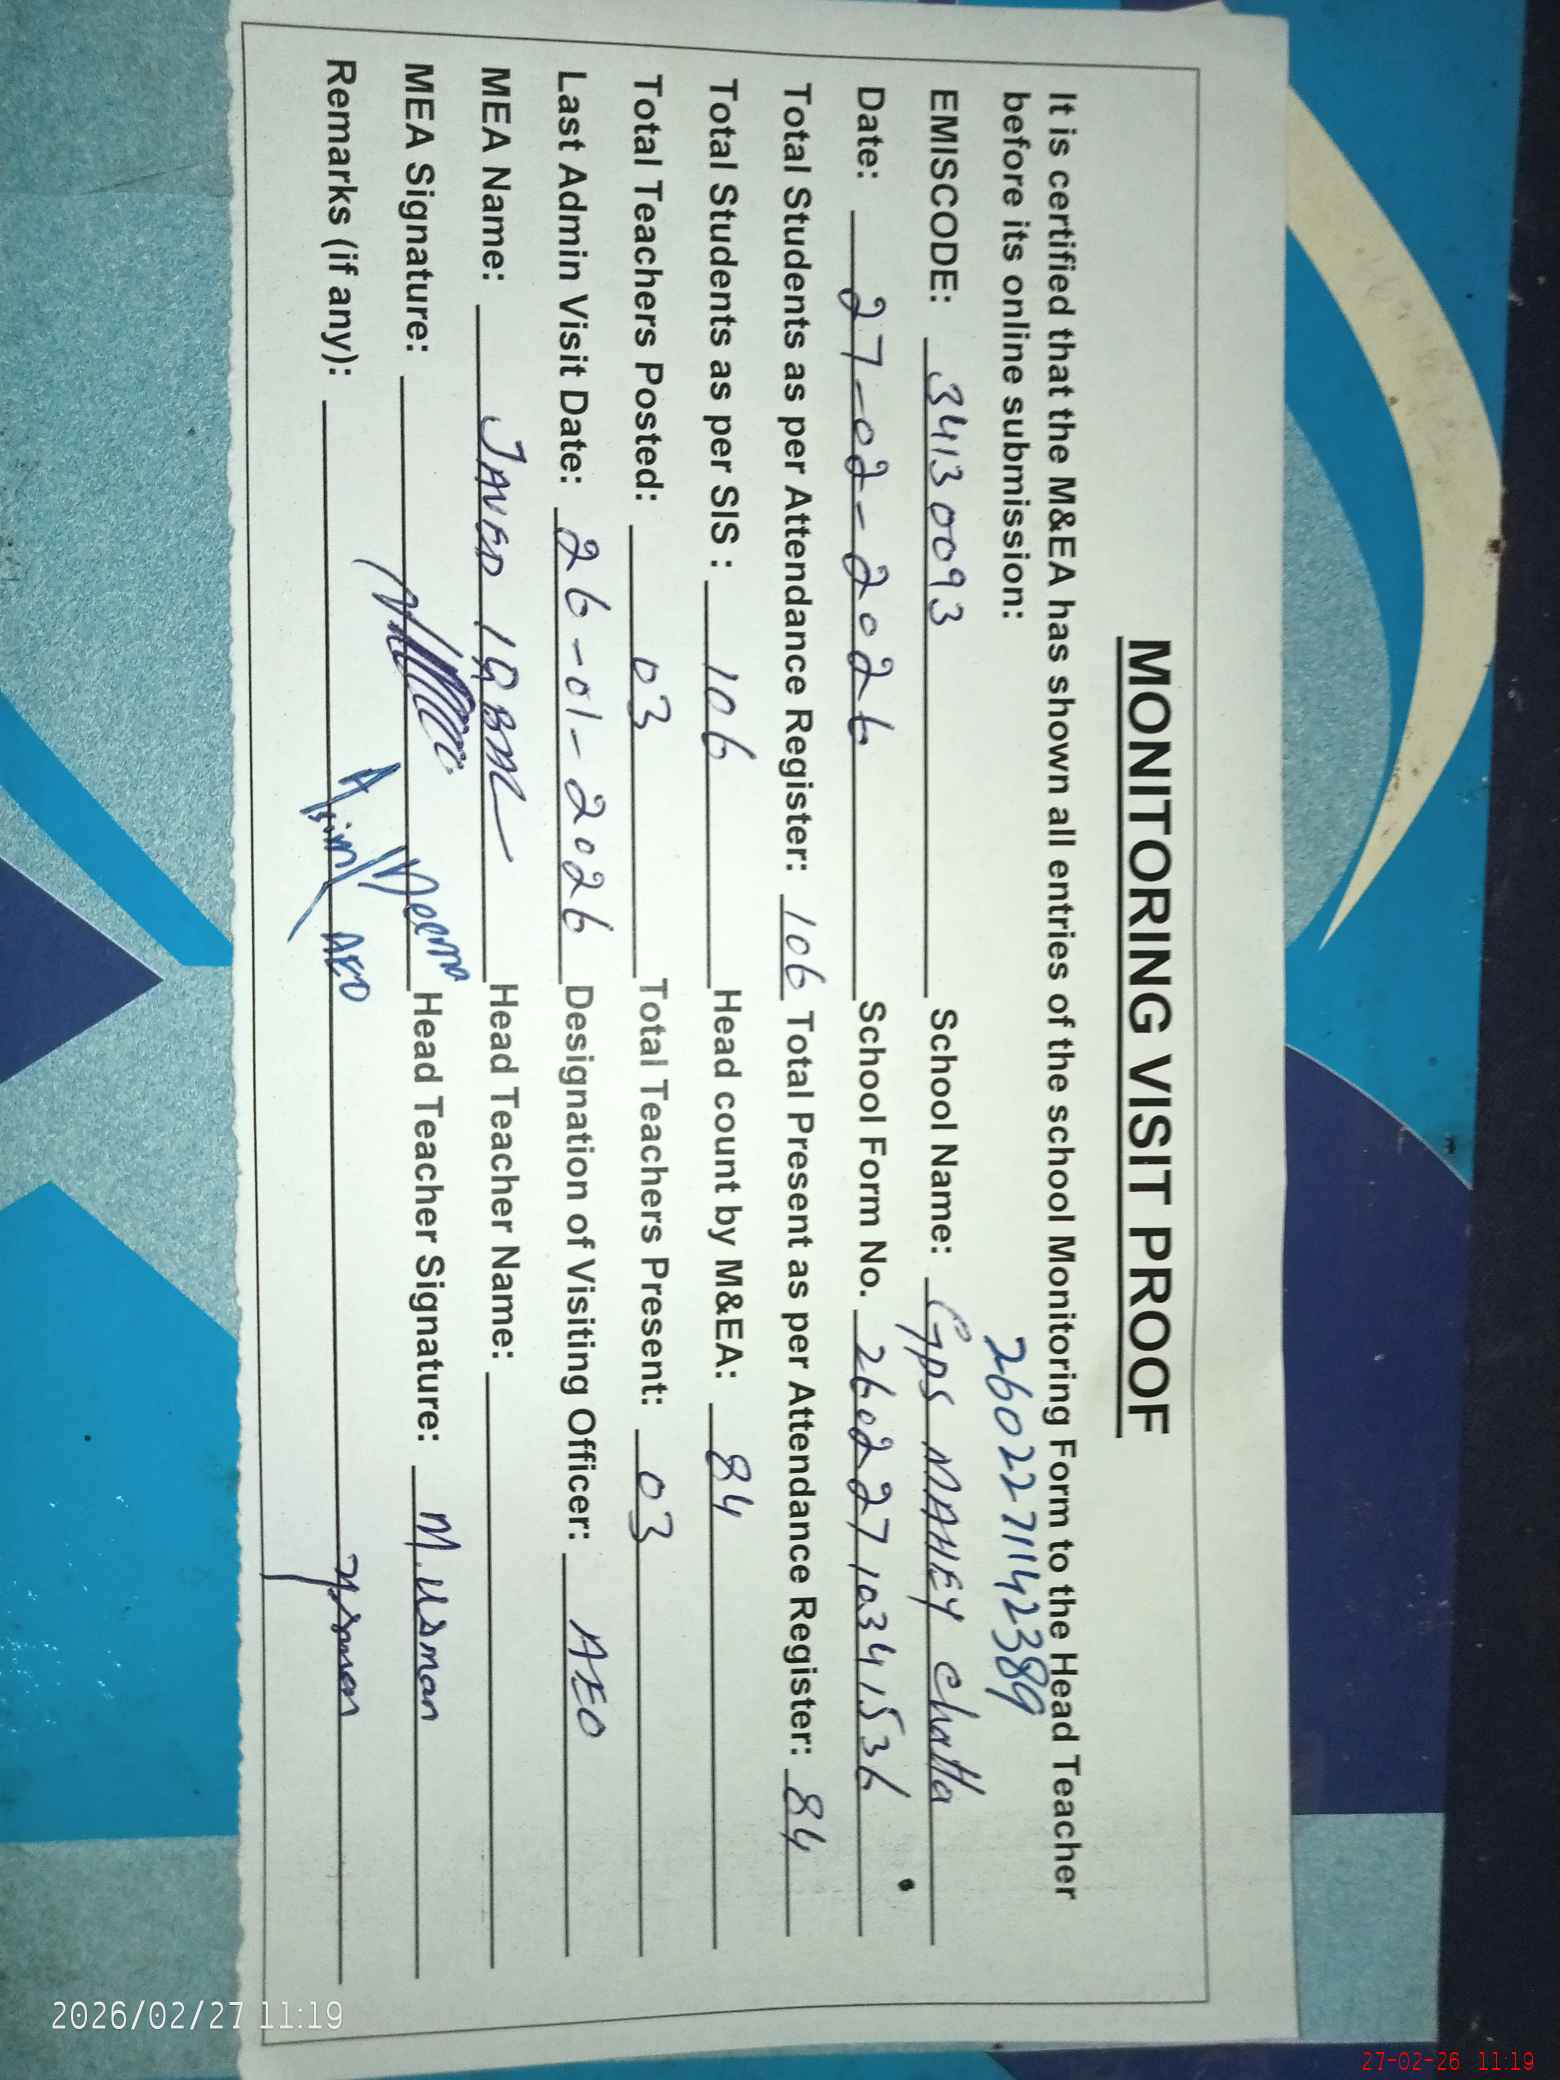 MONITORING VISIT PROOF
It is certified that the M&EA has shown all entries of the school Monitoring Form to the Head Teacher
before its online submission:
2602271142389
EMISCODE: 34130093 School Name: GPS NAHEY Chatta
Date: 27-02-2026 School Form No. 26022710341536
Total Students as per Attendance Register: 106 Total Present as per Attendance Register: 84
Total Students as per SIS : 106 Head count by M&EA: 84
Total Teachers Posted: 03 Total Teachers Present: 03
Last Admin Visit Date: 26-01-2026 Designation of Visiting Officer: AEO
MEA Name: JAVED IQBAL Head Teacher Name:
MEA Signature: Head Teacher Signature: M. Usman
Remarks (if any): AEO Usman
2026/02/27 11:19
27-02-26 11:19